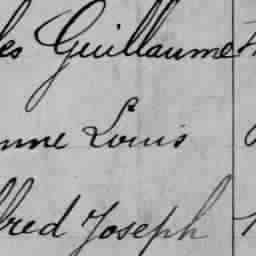 les Guillaume
nne Louis
lfred Joseph